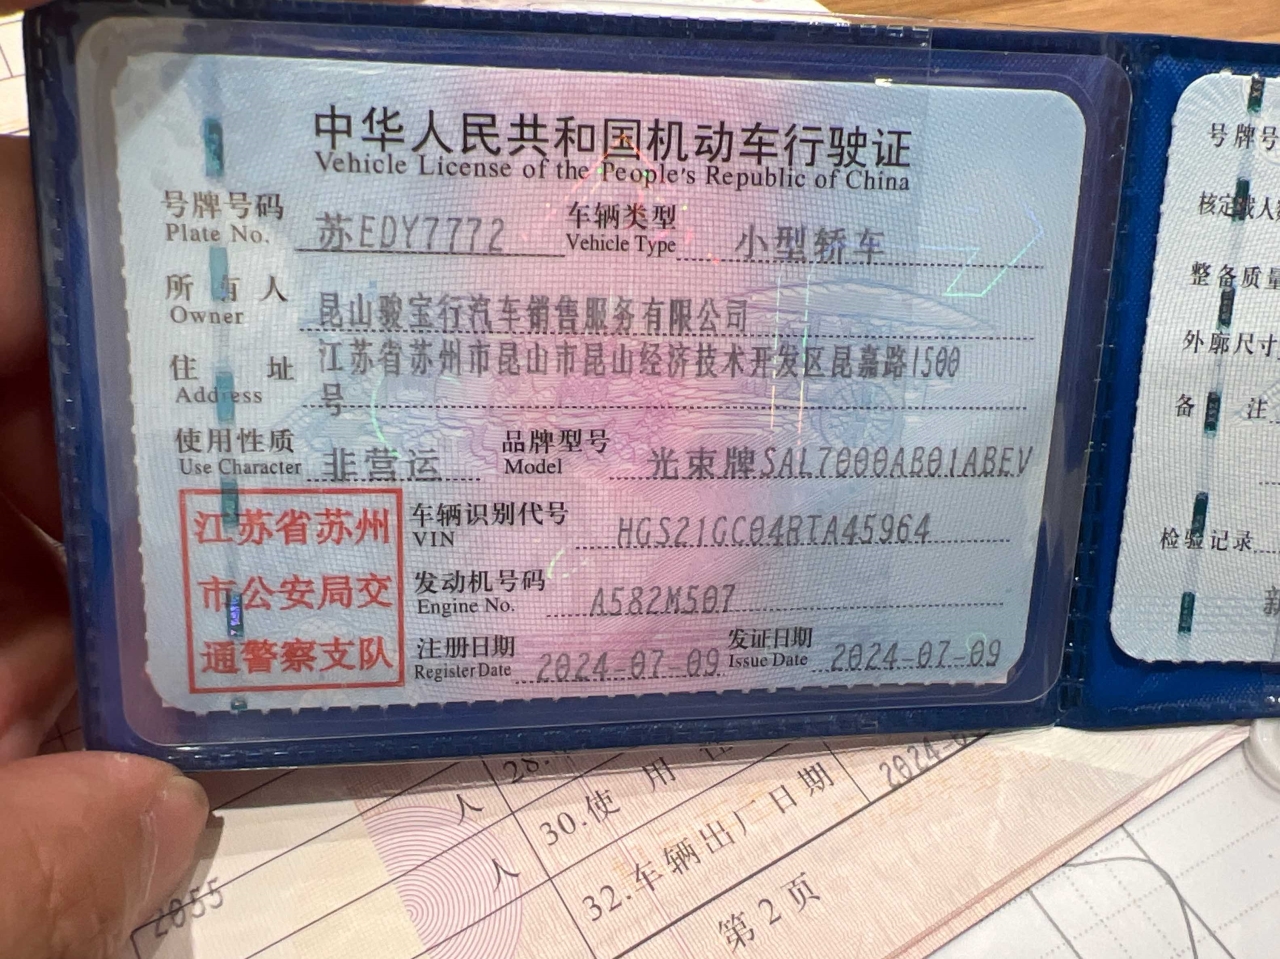 中华人民共和国机动车行驶证
Vehicle License of the People's Republic of China
号牌号码 苏EDY7772 车辆类型 小型轿车
Plate No. Vehicle Type
所有人 昆山骏宝行汽车销售服务有限公司
Owner
住址 江苏省苏州市昆山市昆山经济技术开发区昆嘉路1500
Address 号
使用性质 非营运 品牌型号 光束牌SAL7000AB01ABEV
Use Character Model
江苏省苏州
市公安局交
通警察支队
车辆识别代号 HGS21GC04RTA45964
VIN
发动机号码 A582M507
Engine No.
注册日期 2024-07-09 发证日期 2024-07-09
Register Date Issue Date
号牌号
核定载人
整备质量
外廓尺寸
备注
检验记录
28.
人 30.使用
人 32.车辆出厂日期 2024-0
2055
第2页